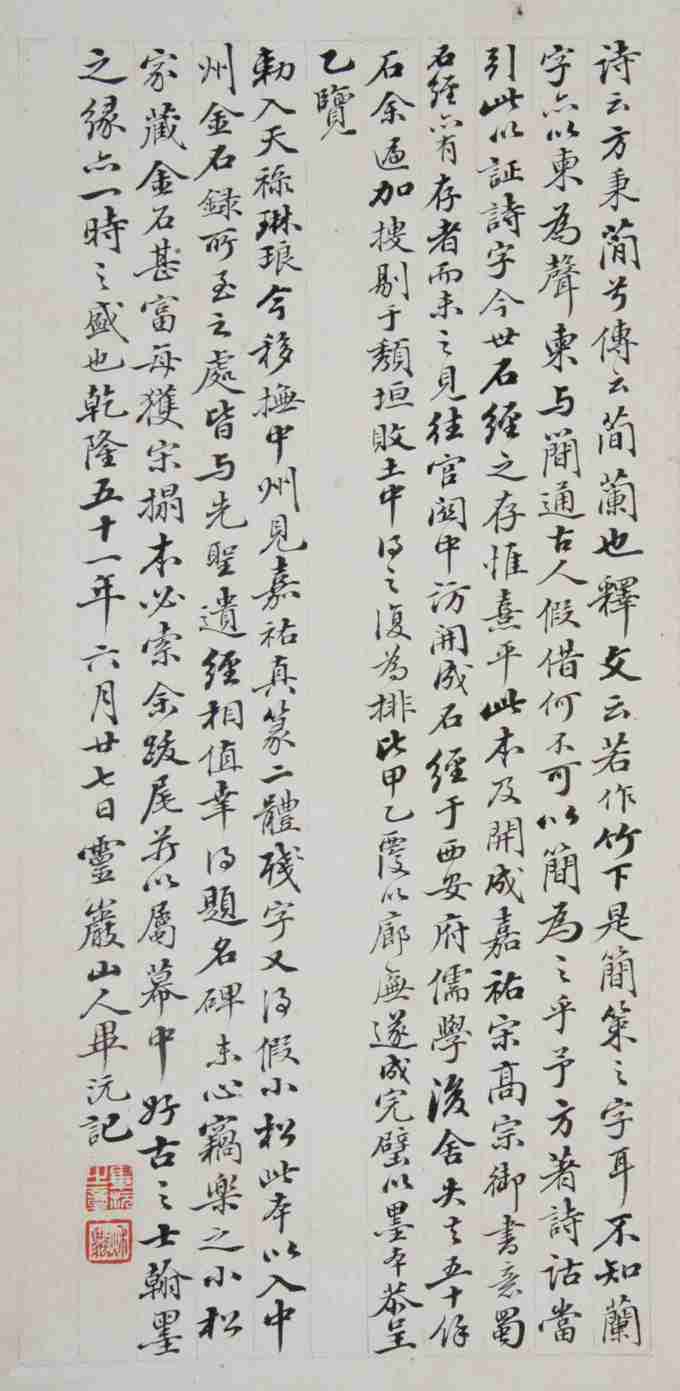 诗云方秉蕳兮傳云蕳蘭也釋文云若作竹下是簡策之字耳不知蘭
字亦以柬為聲柬与蕳通古人假借何不可以簡為之乎予方著詩詁當
引此以証詩字今世石經之存惟熹平此本及開成嘉祐宋高宗御書意蜀
石經亦有存者而未之見往官關中訪開成石經于西安府儒學後舍失其五十餘
石余遍加搜剔于頹垣敗土中得之復為排比甲乙覆以廊廡遂成完璧以墨本恭呈
乙覽
勅入天祿琳琅今移撫中州見嘉祐真篆二體殘字又得假小松此本以入中
州金石録所至之處皆与先聖遺經相值幸得題名碑末心竊樂之小松
家藏金石甚富每獲宋搨本必索余跋尾并以屬幕中好古之士翰墨
之緣亦一時之盛也乾隆五十一年六月廿七日靈巖山人畢沅記